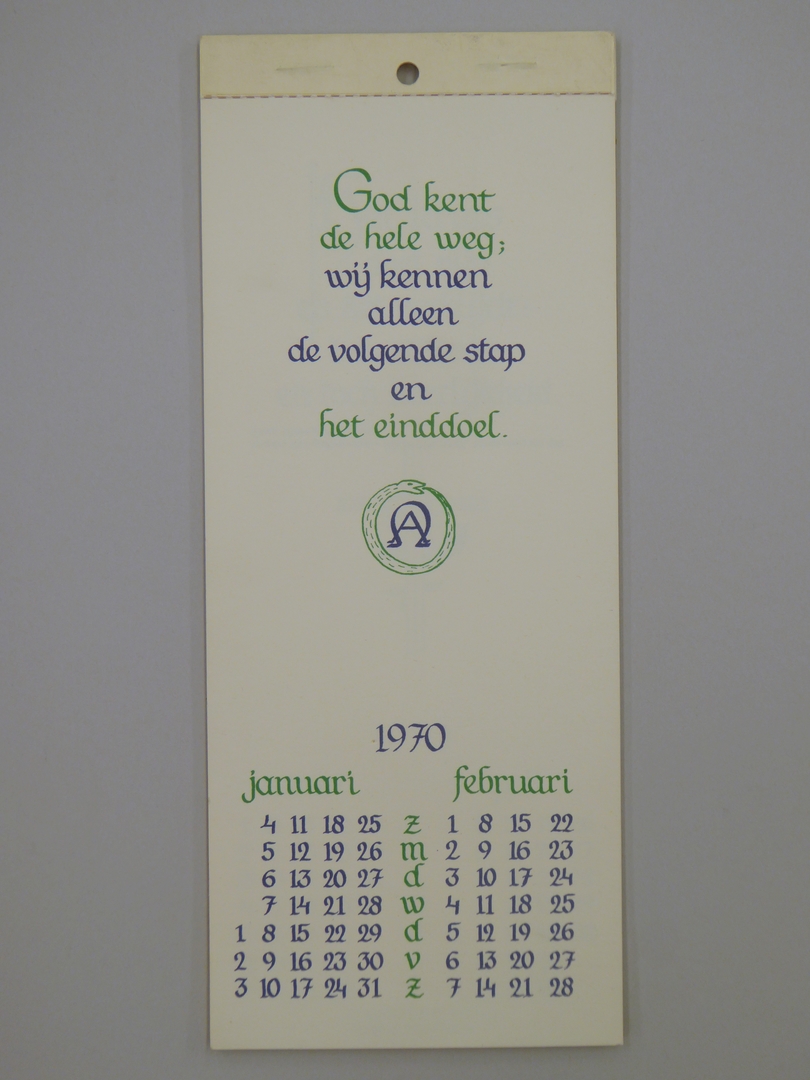 God kent
de hele weg;
wij kennen
alleen
de volgende stap
en
het einddoel.
AΩ
1970
januari februari
4 11 18 25 z 1 8 15 22
5 12 19 26 m 2 9 16 23
6 13 20 27 d 3 10 17 24
7 14 21 28 w 4 11 18 25
1 8 15 22 29 d 5 12 19 26
2 9 16 23 30 v 6 13 20 27
3 10 17 24 31 z 7 14 21 28